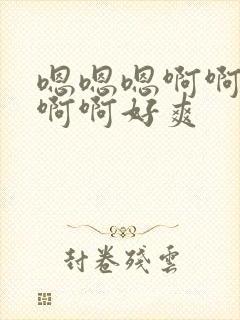 嗯嗯嗯啊啊
啊啊好爽
封卷殘雲